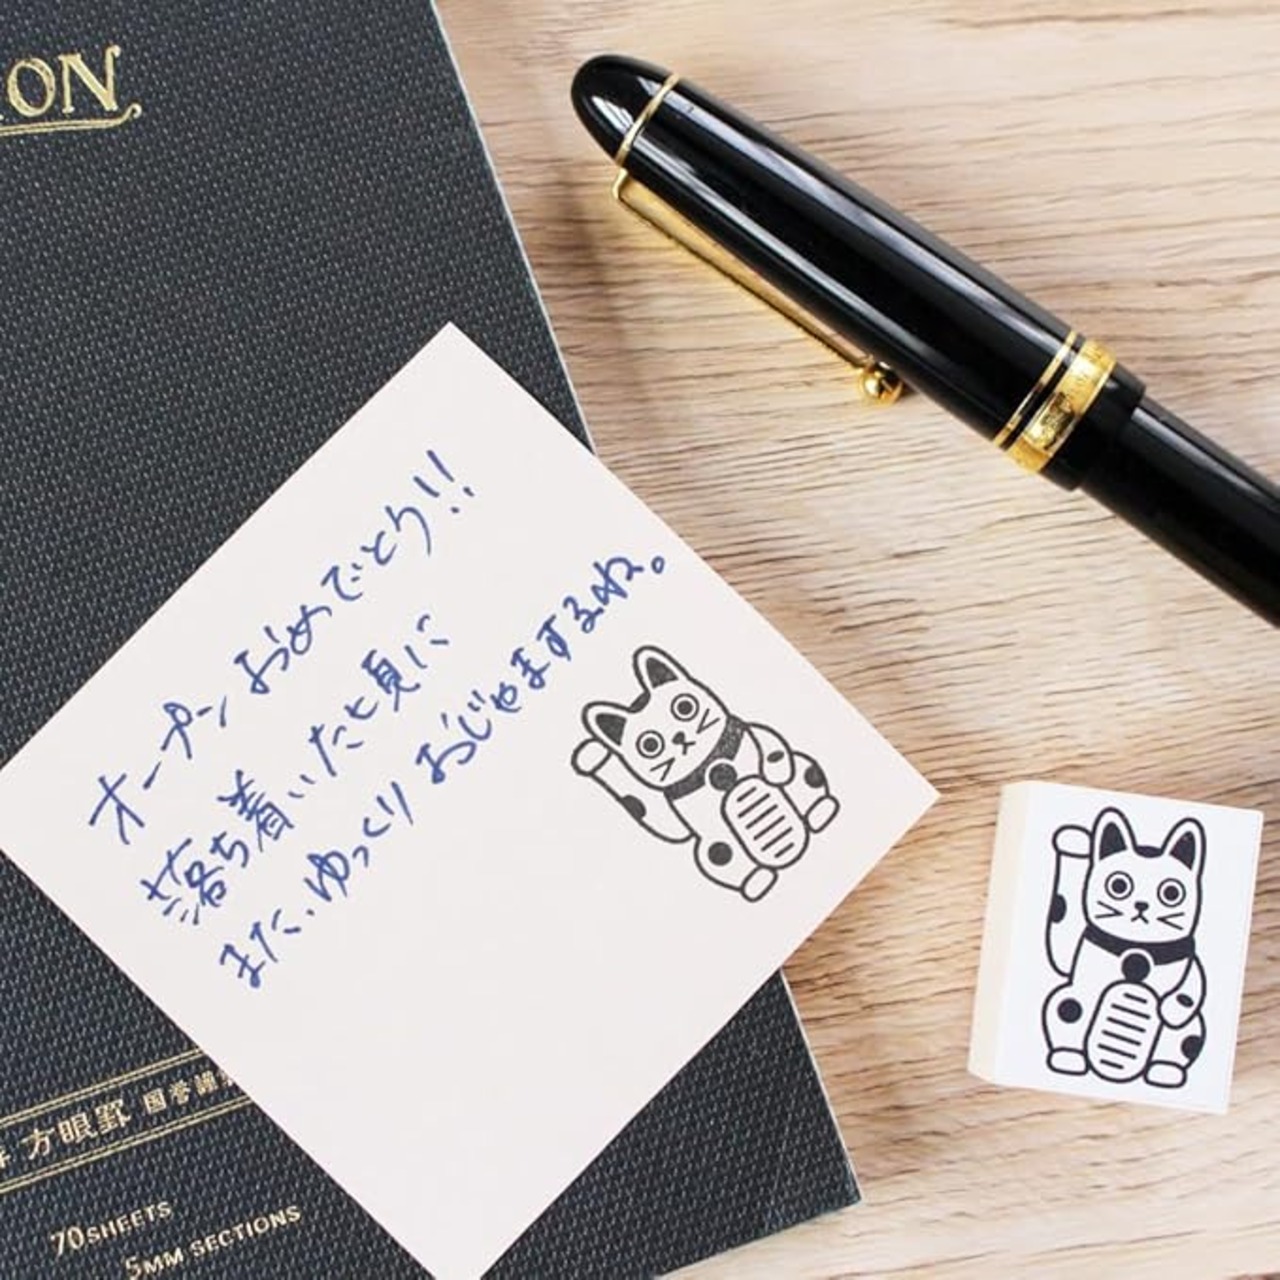 ON
オープンおめでとう!!
落ち着いた頃に
また、ゆっくりおじゃまするね。
方眼罫
70 SHEETS
5MM SECTIONS